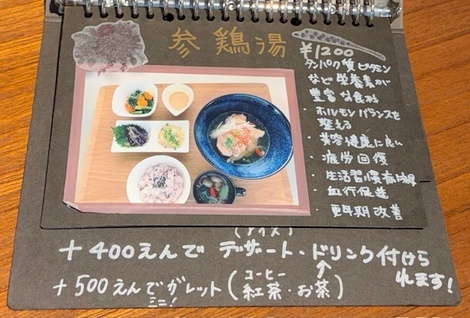 参鶏湯
¥1200
タンパク質ビタミン
など栄養素が
豊富な食材
・ホルモンバランスを
整える
・美容健康に良い
・疲労回復
・生活習慣病
・血行促進
更年期改善
(アイス)
+400えんで デザート・ドリンク付けら
れます!
+500えんでガレット(コーヒー
紅茶・お茶)
ミニ!